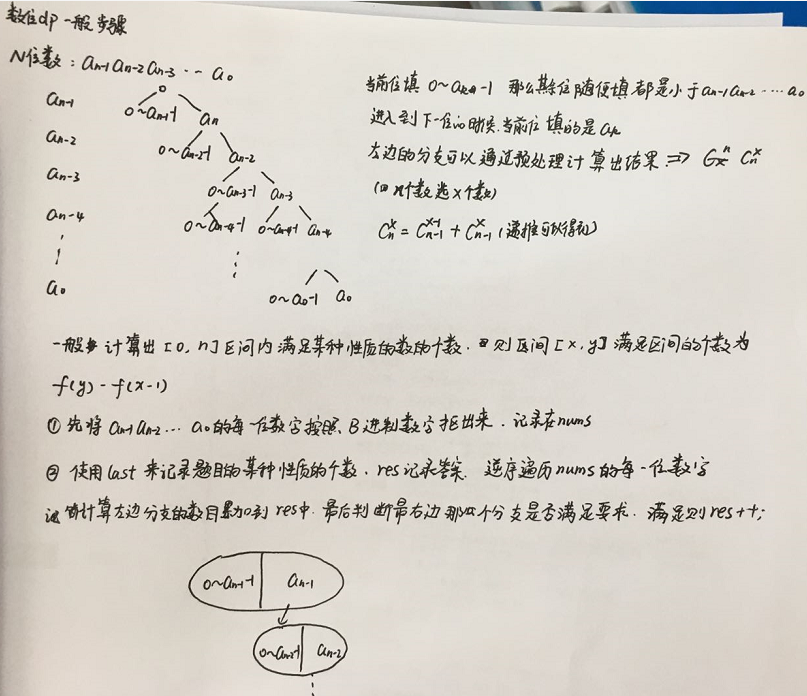 数位dp一般步骤
N位数：an-1 an-2 an-3 ··· a0
an-1
an-2
an-3
an-4
a0
0
0~an-1-1 an
0~an-2-1 an-2
0~an-3-1 an-3
0~an-4-1 0~an-4-1 an-4
0~a0-1 a0
当前位填 0~ -1 那么其余位随便填都是小于 an-1 an-2 ···· a0
进入到下一位的时候，当前位填的是
左边的分支可以通过预处理计算出结果 => Cn^x
(n个数选x个数)
Cn^x = Cn-1^x-1 + Cn-1^x (递推可以得到)
一般 计算出 [0, n] 区间内满足某种性质的数的个数，则区间 [x, y] 满足区间的个数为
f(y) - f(x-1)
① 先将 an-1 an-2 ··· a0 的每一位数字按照 B进制数字抠出来，记录在nums
② 使用last来记录题目的某种性质的个数，res记录答案，逆序遍历nums的每一位数字
计算左边分支的数目累加到res中，最后判断最右边那 个分支是否满足要求，满足则res++;
0~an-1-1 an-1
0~an-2-1 an-2